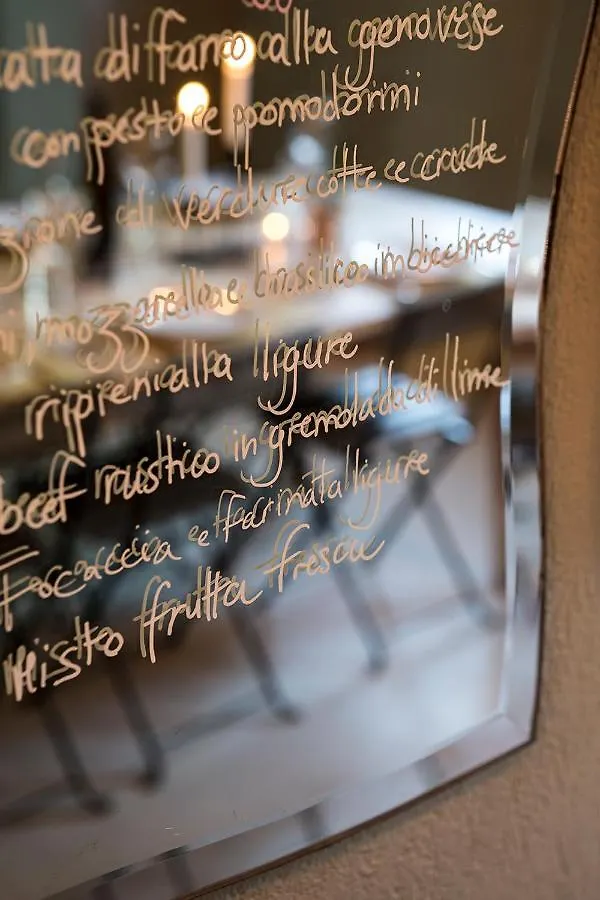 lata di farro alla genovese
con pesto e pomodorini
zione di verdure cotte e crude
ni, mozzarella e basilico in bicchiere
ripieni alla ligure
beef rustico in gremolada di lime
Focaccia e farinata ligure
Misto frutta fresca